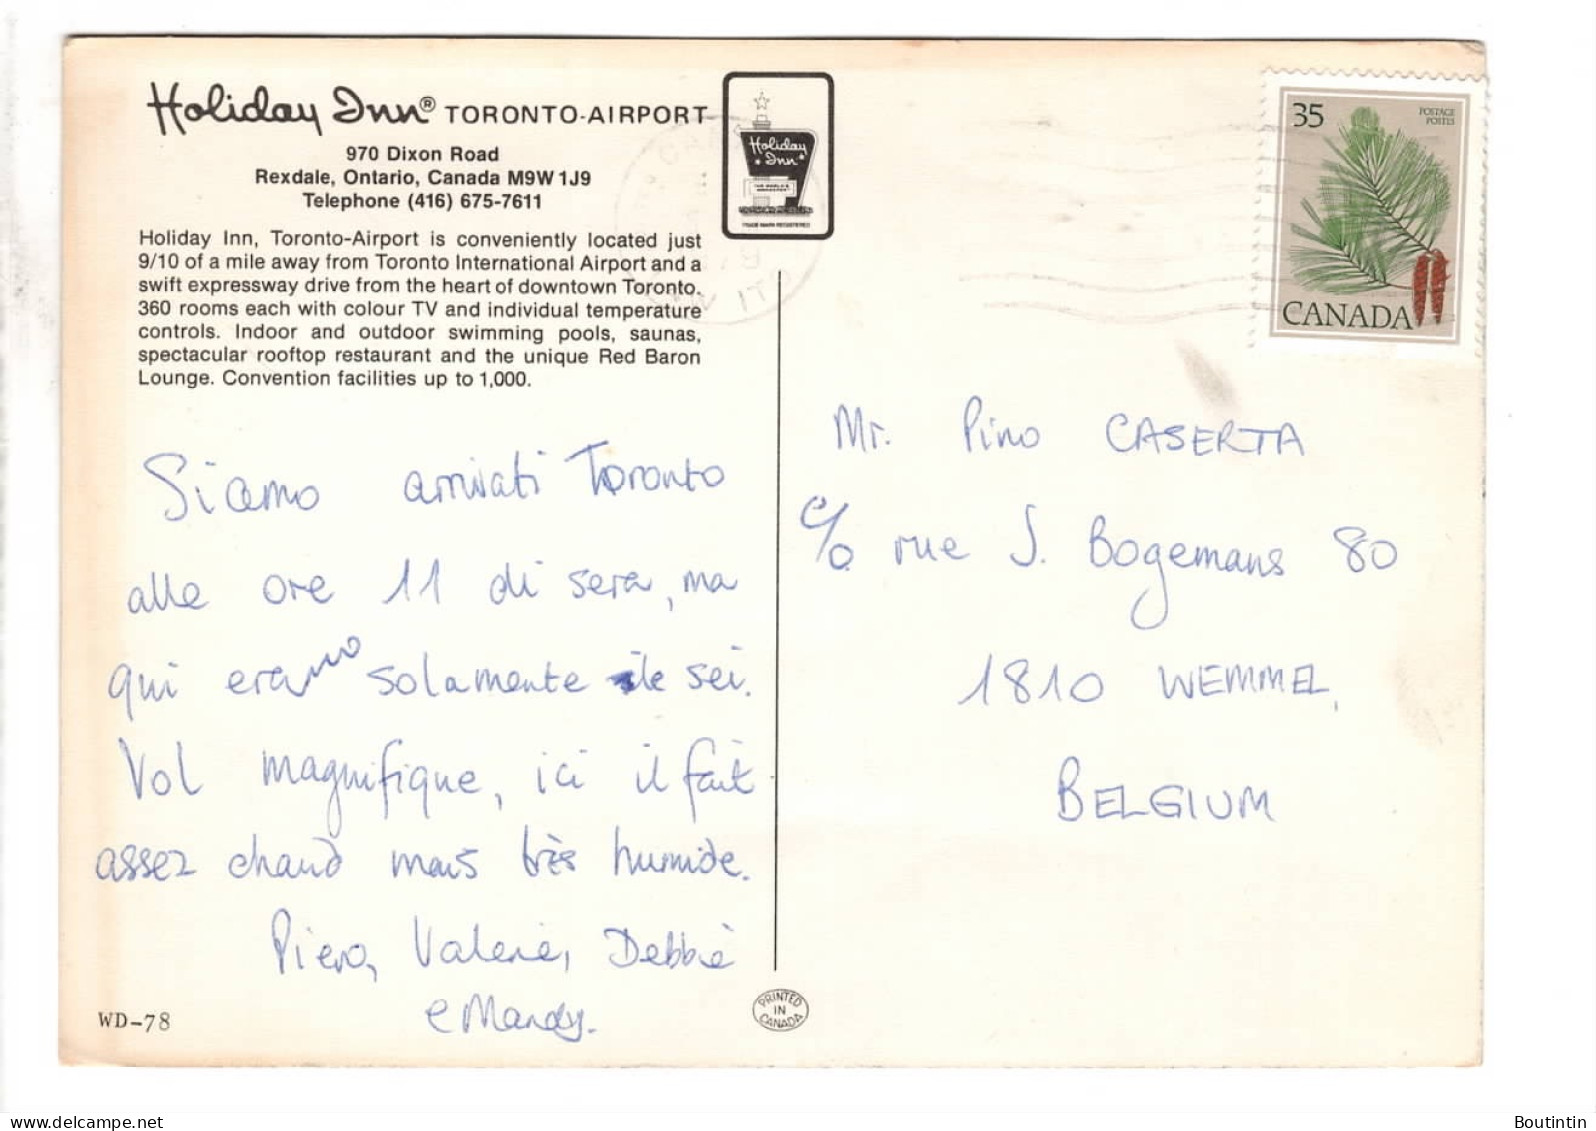 Holiday Inn® TORONTO-AIRPORT
970 Dixon Road
Rexdale, Ontario, Canada M9W 1J9
Telephone (416) 675-7611
Holiday Inn, Toronto-Airport is conveniently located just
9/10 of a mile away from Toronto International Airport and a
swift expressway drive from the heart of downtown Toronto.
360 rooms each with colour TV and individual temperature
controls. Indoor and outdoor swimming pools, saunas,
spectacular rooftop restaurant and the unique Red Baron
Lounge. Convention facilities up to 1,000.
Holiday
Inn
TRADE MARK REGISTERED
35
POSTAGE
POSTES
CANADA
Siamo arrivati Toronto
alle ore 11 di sera, ma
qui eramo solamente le sei.
Vol magnifique, ici il fait
assez chaud mais très humide.
Piero, Valerie, Debbie
e Mandy.
Mr. Pino CASERTA
c/o. rue J. Bogemans 80
1810 WEMMEL,
BELGIUM
WD-78
PRINTED
IN
CANADA
Boutintin